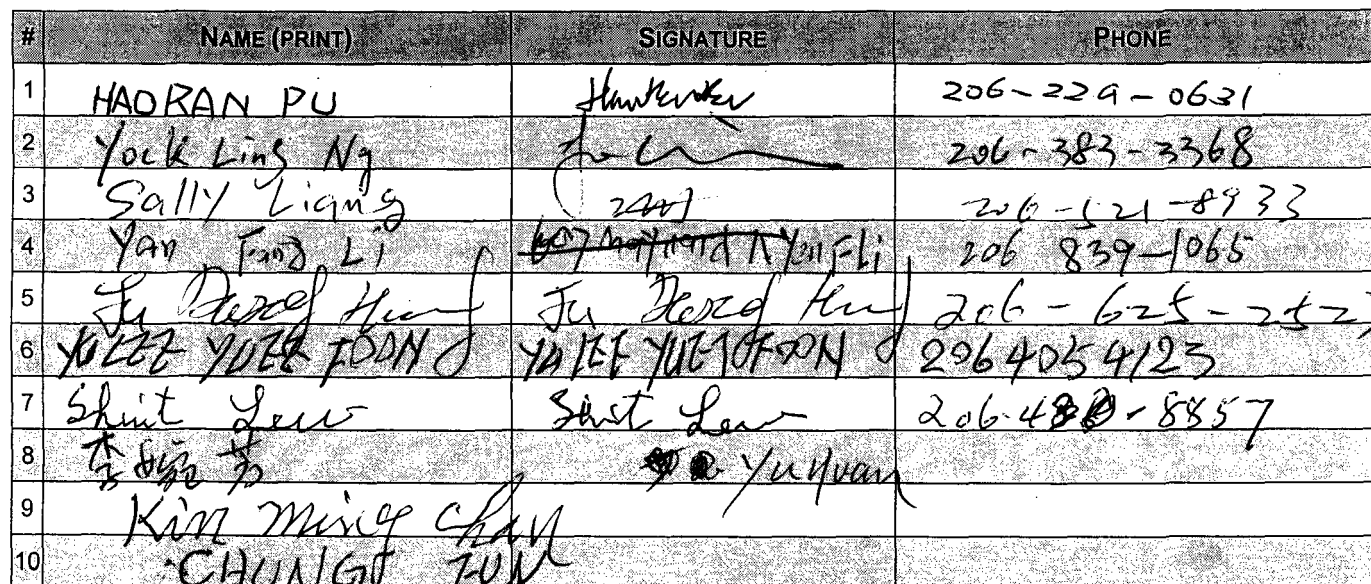 # NAME (PRINT) SIGNATURE PHONE
1 HAORAN PU 206-229-0631
2 Yock Ling Ng 206-383-3368
3 Sally Liang 206-521-8933
4 Yan Fang Li Yan F Li 206 839-1065
5 Ju Huang Ju 206-625-252
6 YULEE YUEE FOON YULEE FOON 2064054123
7 Shuit Lew Lew 206-48 -8857
8 李 芳 Yu Yuan
9 Kin ming chan
10 CHUNG FUN